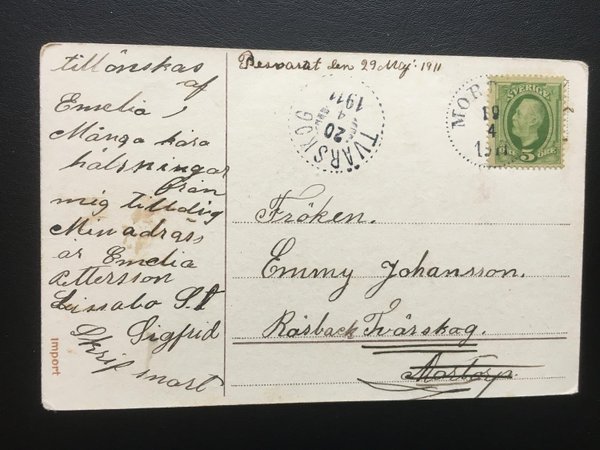 tillönskas
af
Emelia,
Många kära
hälsningar
från
mig till dig
Min adras,
är Emelia
Pettersson
Lissabo St
Sigfrid
Skrif snart
import
Besvarat den 29 Maj. 1911
TVÄRSKOG
20
4
1911
MOR
19
4
191
SVERIGE
5 ÖRE
Fröken.
Emmy Johansson.
Råsback Tvärskog.